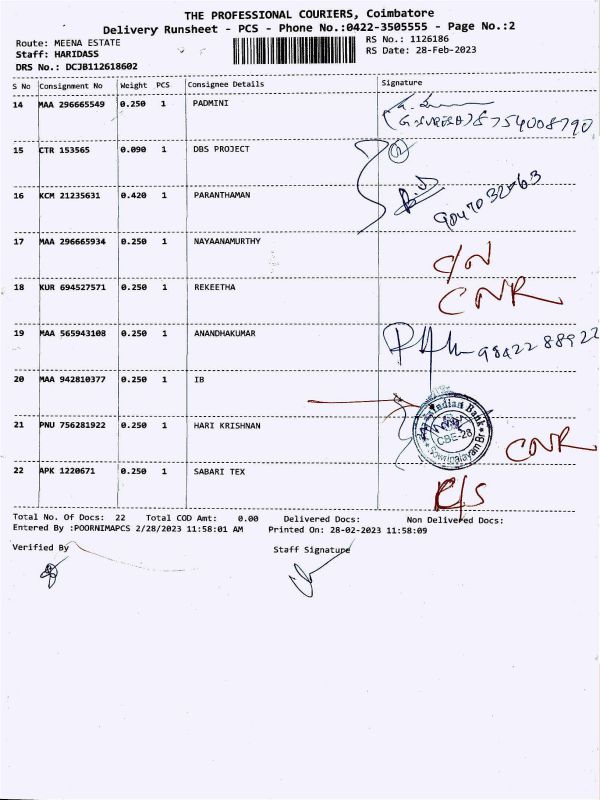 THE PROFESSIONAL COURIERS, Coimbatore
Delivery Runsheet - PCS - Phone No.:0422-3505555 - Page No.:2
Route: MEENA ESTATE
Staff: HARIDASS
DRS No.: DCJB112618602
RS No.: 1126186
RS Date: 28-Feb-2023
S No Consignment No Weight PCS Consignee Details Signature
14 MAA 296665549 0.250 1 PADMINI
8754008790
15 CTR 153565 0.090 1 DBS PROJECT
16 KCM 21235631 0.420 1 PARANTHAMAN
17 MAA 296665934 0.250 1 NAYAANAMURTHY
C/N
CNR
18 KUR 694527571 0.250 1 REKEETHA
19 MAA 565943108 0.250 1 ANANDHAKUMAR
9842288922
20 MAA 942810377 0.250 1 IB
Indian Bank
CBE-28
21 PNU 756281922 0.250 1 HARI KRISHNAN CNR
22 APK 1220671 0.250 1 SABARI TEX
Total No. Of Docs: 22 Total COD Amt: 0.00 Delivered Docs: Non Delivered Docs:
Entered By :POORNIMAPCS 2/28/2023 11:58:01 AM Printed On: 28-02-2023 11:58:09
Verified By Staff Signature